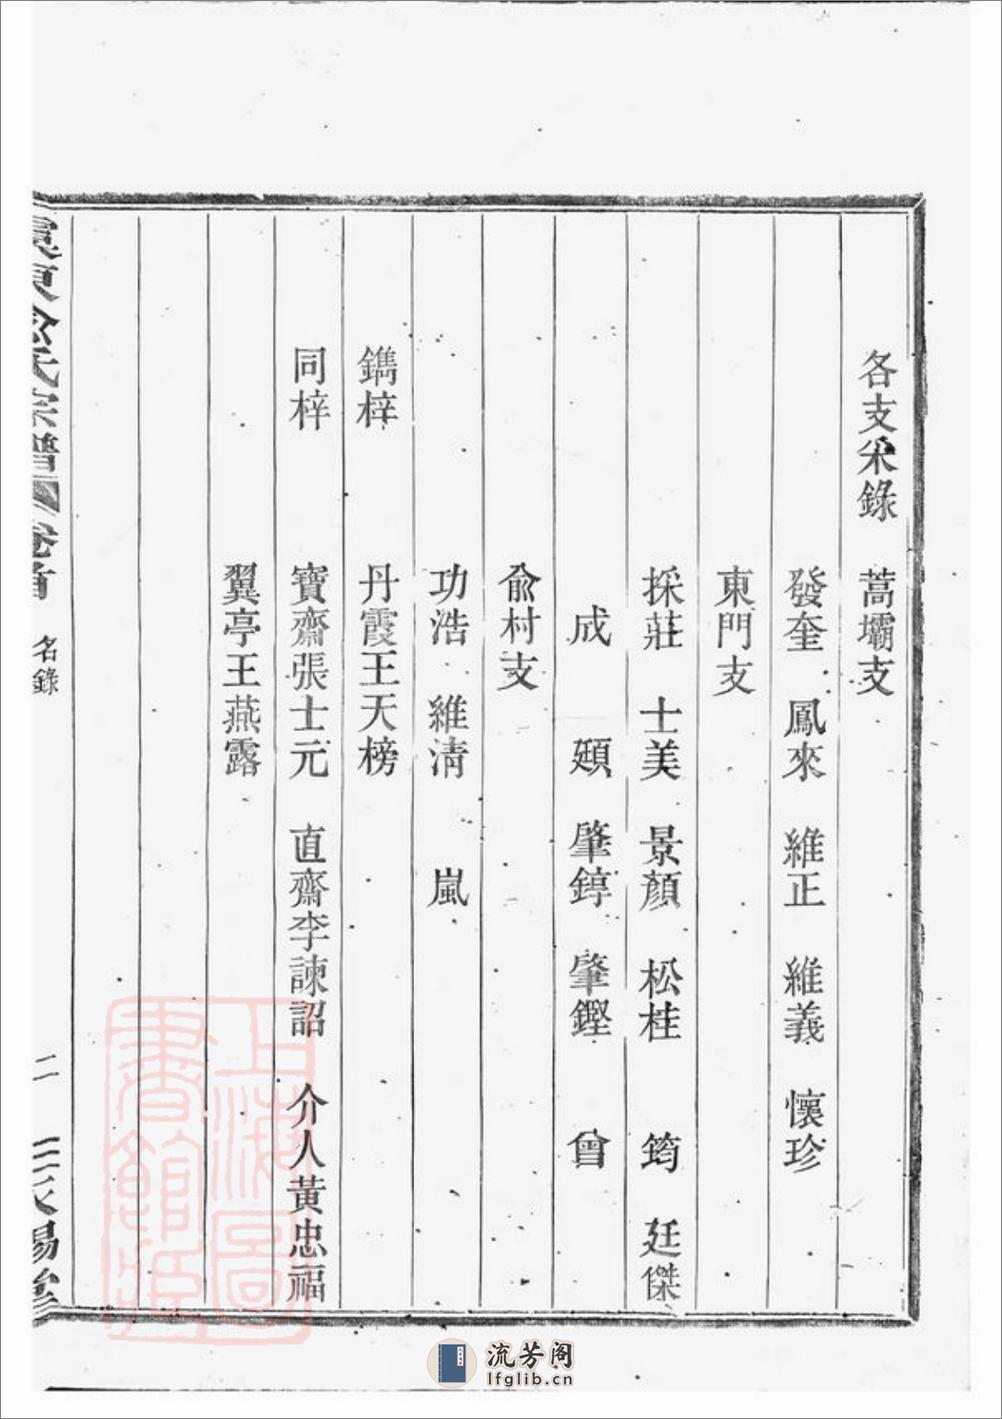 各支采錄 蒿壩支
發奎 鳳來 維正 維義 懷珍
東門支
採莊 士美 景顏 松桂 筠 廷傑
成 頲 肇錞 肇鏗 曾
俞村支
功浩 維清 嵐
鐫梓 丹霞王天榜
同梓 寶齋張士元 直齋李諫詔 介人黃忠福
翼亭王燕露
氏宗譜 卷首 名錄 二
上海圖書館藏
流芳阁
lfglib.cn